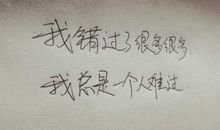 我错过了很多很多.
我总是一个人难过.